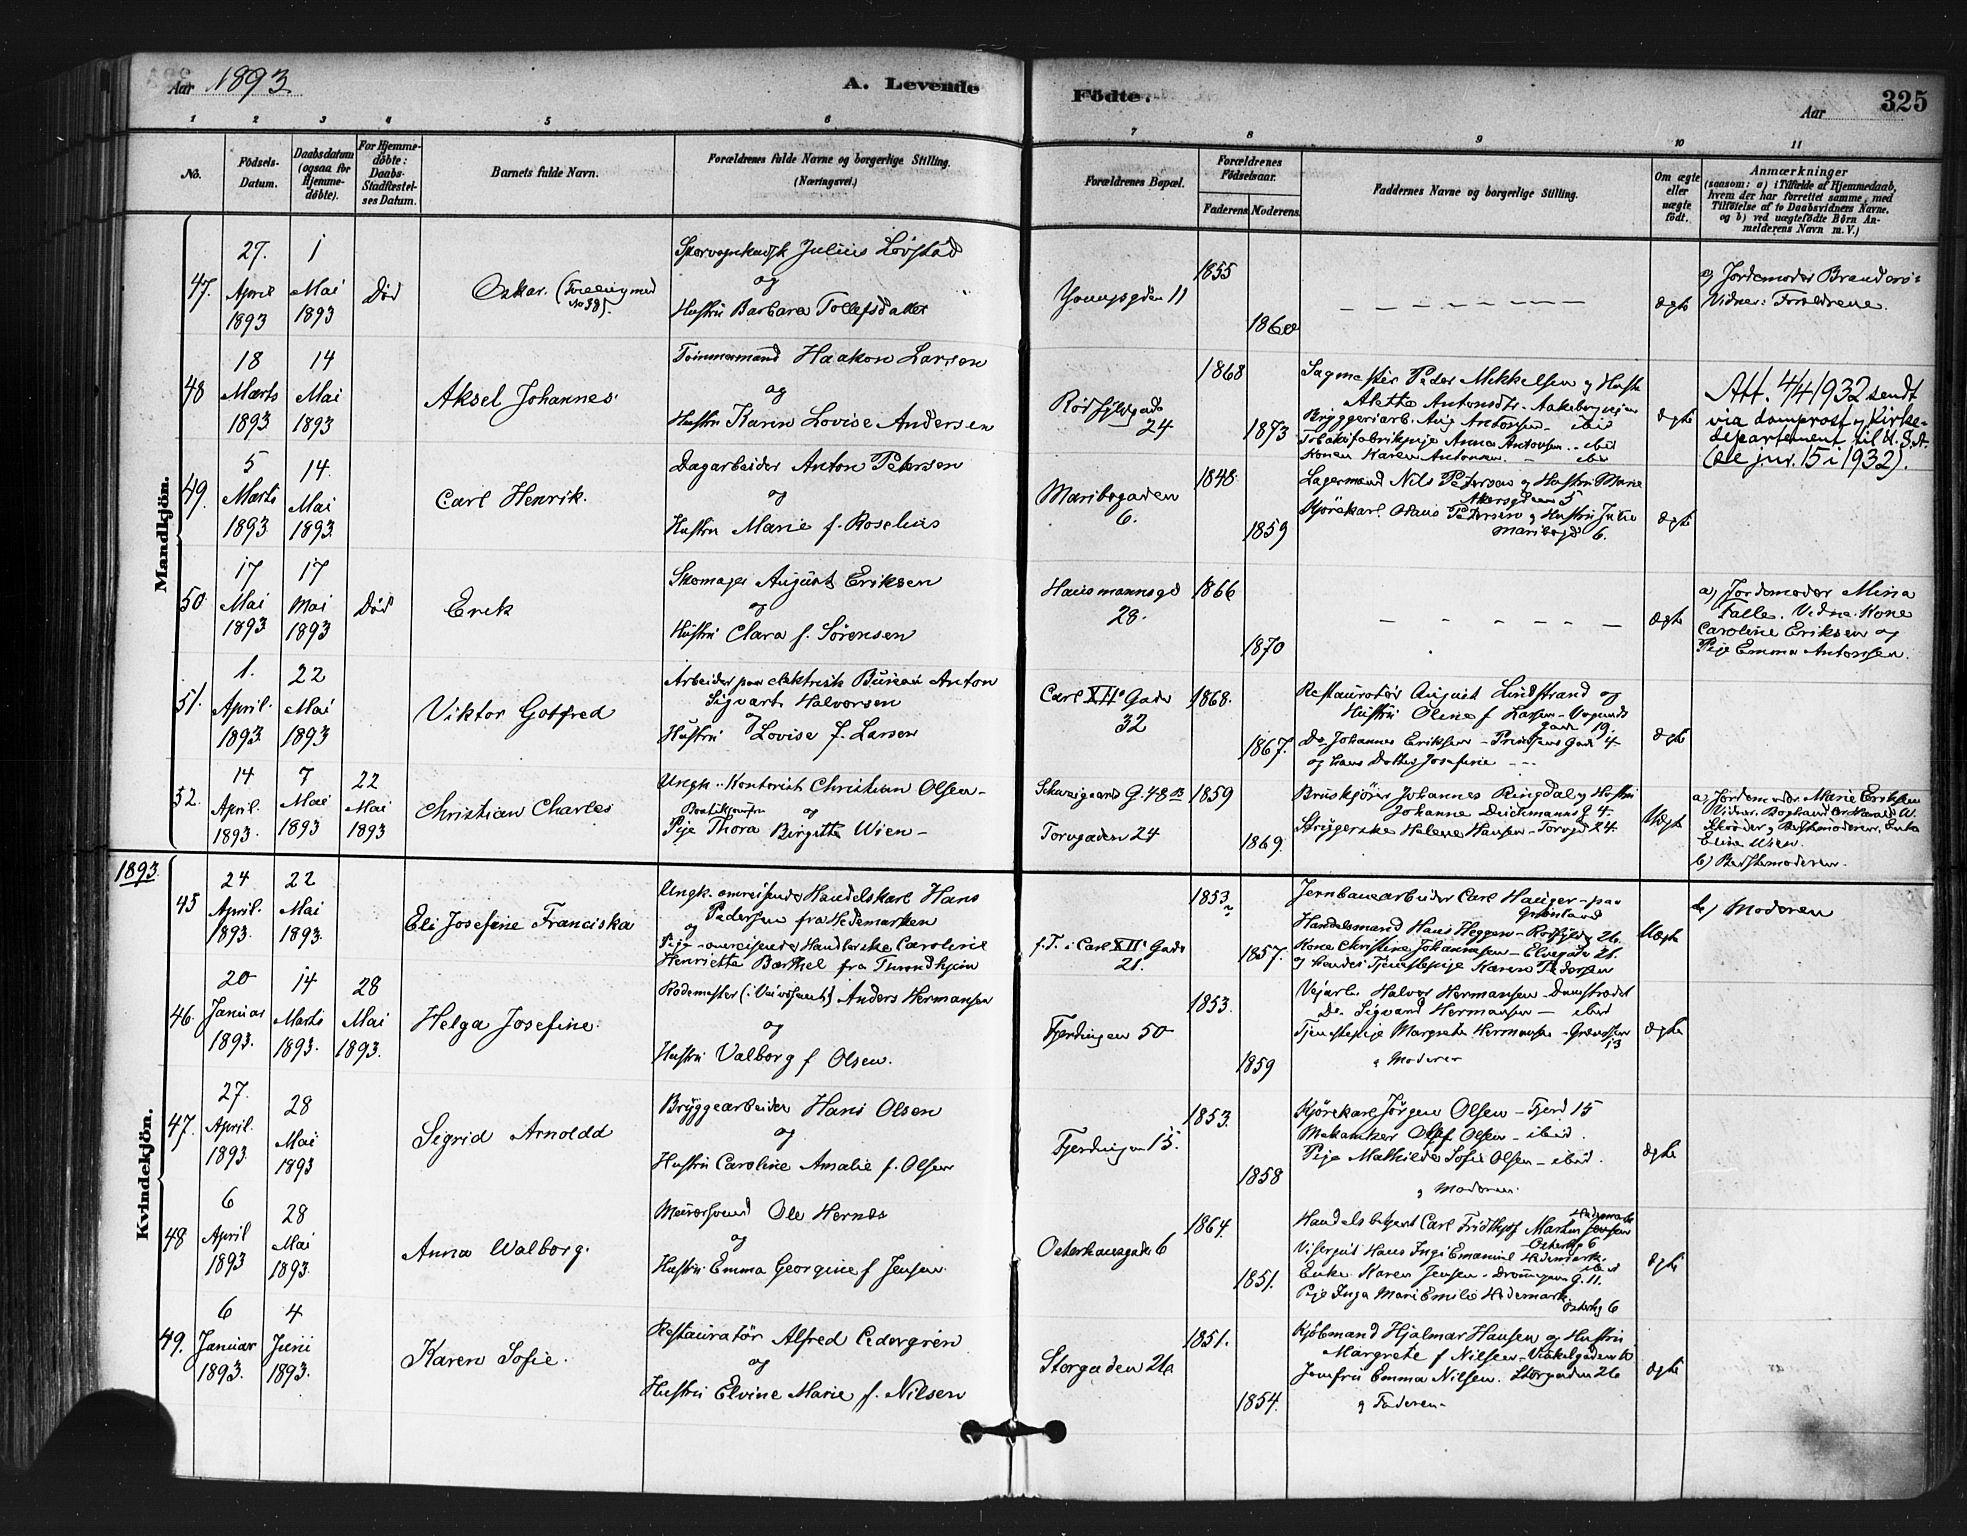 Aar 1893.
A. Levende
Födte.
Aar
325
1 2 3 4 5 6 7 8 9 10 11
No.
Födsels-Datum.
Daabsdatum (ogsaa for Hjemmedöbte).
For Hjemmedöbte: Daabs-Stadfæstelses Datum.
Barnets fulde Navn.
Forældrenes fulde Navne og borgerlige Stilling. (Næringsvei.)
Forældrenes Bopæl.
Forældrenes Födselsaar.
Faderens. Moderens.
Faddernes Navne og borgerlige Stilling.
Om ægte eller uægte födt.
Anmærkninger
(saasom: a) i Tilfælde af Hjemmedaab,
hvem der har forrettet samme, med
Tilföielse af to Daabsvidners Navne.
og b) ved uægtefödte Börn Anmelderens Navn m. V.)
Mandkjön.
47. 27. April 1893
1 Mai 1893
Död
Oskar. (Tvilling med No 38).
Julius Lövstad
og
Hustru Barbara Tollefsdatter
11
1855
1860
ægte
a) Jordemoder
Vidner: Forældrene.
48 18 Marts 1893
14 Mai 1893
Aksel Johannes
Tömmermand Haakon Larsen
og
Hustru Karen Lovise Andersen
24
1868
1873
Sagmester Peder Mikkelsen og Hustru
Bryggeriarb. Aug Antonsen - ibid
Anna Antonsen - ibid
Konen Karen Antonsen - ibid
ægte
Att. 4/4 1932 sendt
via domprost og Kirke-
departement til U.S.A.
(se jnr. 15 i 1932).
49. 5 Marts 1893
14. Mai 1893.
Carl Henrik.
Dagarbeider Anton Petersen
og
Hustru Marie f. Roselius
Maribogaden
6.
1848.
1859
Lagermand Nils Petersen og Hustru Marie
Akersgden 5
Kjörekarl Hans Petersen og Hustru
Maribogd 6.
ægte
50 17 Mai 1893
17 Mai 1893
Död
Erik
Skomager August Eriksen
og
Hustru Clara f. Sörensen
Hausmannsgd
28.
1866
1870
ægte
a) Jordemoder Mina
Falle. Vidne: Kone
Caroline Eriksen og
Pige Emma Antonsen.
51. 1. April. 1893.
22 Mai 1893
Viktor Gotfred
Arbeider paa elektrisk Bureau Anton
Sigvart Halvorsen
og
Hustru Lovise f. Larsen
Carl XII's Gade
32
1868.
1867.
Restauratör August Lindstrand og
Hustru Oline f Larsen - Vognmds
gade 19.
Do. Johannes Eriksen - Prindsens Gade 4
og hans Datter Josefine
ægte
52. 14 April. 1893.
7 Mai 1893
22 Mai 1893
Christian Charles
Ungk. Kontorist Christian Olsen -
og
Pige Thora Birgitte Wien -
Schweigaards G. 48 B
Torvgaden 24
1859
1869.
Bruskjörer Johannes Ringdal og Hustru
Johanne Deichmanns G 4.
Strygerske Helene Hansen - Torvgd 24
Uægte
a) Jordemoder Marie Eriksen
Vidner. Harald W.
Schröder og Bedstemoderen, Enke
Eline Wien.
b) Bedstemoderen.
1893.
Kvindekjön.
45 24 April. 1893.
22 Mai 1893.
Eli Josefine Franciska
Ungk. omreisende Handelskarl Hans
Pedersen fra Hedemarken
og
Pige - omreisende Handlerske Caroline
Henriette Barthel fra Trondhjem
f. T. i Carl XII's Gade
21.
1853
1857.
Jernbanearbeider Carl Hauger - paa
Grönland
Handelsmand Hans Heggen - 26.
Kone Christine Johannesen - Elvegade 21.
og hendes Tjenestepige Karen Pedersen
Uægte
b) Moderen
46. 20 Januar 1893.
14 Marts 1893.
28 Mai 1893.
Helga Josefine.
Rodemester Anders Hermansen
og
Hustru Valborg f Olsen.
Fjerdingen 50
1853.
1859
Halvor Hermansen -
Do. Sigvard Hermansen - ibid
Tjenestepige Margrete Hermansen -
13
og Moderen
ægte
47. 27. April. 1893.
28 Mai 1893
Sigrid Arnoldd
Bryggearbeider Hans Olsen
og
Hustru Caroline Amalie f. Olsen
Fjerdingen 15.
1853.
1858
Kjörekarl Jörgen Olsen - Fjerd 15
Mekaniker Olaf Olsen - ibid.
Pige Mathilde Sofie Olsen - ibid.
og Moderen.
ægte
48 6 April 1893
28 Mai 1893.
Anna Walborg.
Murersvend Ole Hernes
og
Hustru Emma Georgine f Jensen.
Osterhausgade 6
1864.
1851.
Handelsbetjent Carl Fridthjof
Osterhg 6
Visergut Hans Inge Emanuel Hedemark
ibid
Enke Karen Jensen - G. 11.
Pige Inga Mari Emilie Hedemark
Osterhg 6
ægte
49. 6 Januar 1893.
4 Juni 1893.
Karen Sofie.
Restauratör Alfred Cedergren
og
Hustru Elvine Marie f. Nilsen
Storgaden 26
1851.
1854.
Kjöbmand Hjalmar Hansen og Hustru
Margrete f Nilsen - Vinkelgaden 10
Jomfru Emma Nilsen. Storgaden 26
og Faderen -
ægte